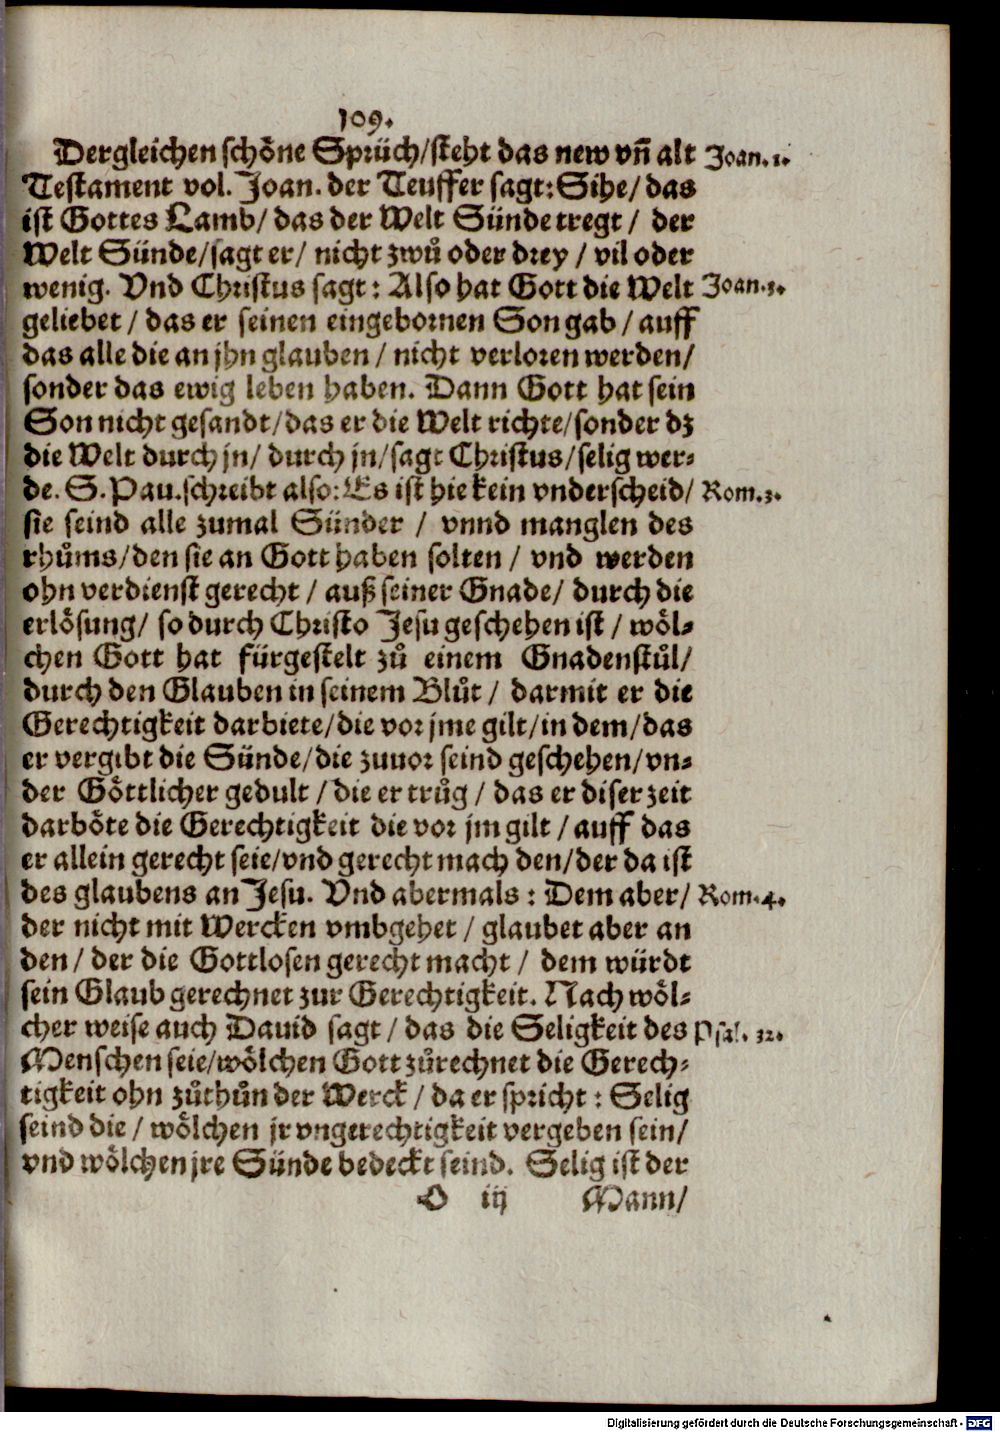 109.
Dergleichen schöne Sprüch/steht das new vñ alt Joan. 1.
Testament vol. Joan. der Teuffer sagt: Sihe/ das
ist Gottes Lamb/ das der Welt Sünde tregt / der
Welt Sünde/sagt er/ nicht zwů oder drey / vil oder
wenig. Vnd Christus sagt: Also hat Gott die Welt Joan. 3.
geliebet / das er seinen eingebornen Son gab / auff
das alle die an jhn glauben / nicht verloren werden/
sonder das ewig leben haben. Dann Gott hat sein
Son nicht gesandt/das er die Welt richte/sonder dz
die Welt durch jn/ durch jn/sagt Christus/selig wer-
de. S. Pau. schreibt also: Es ist hie kein vnderscheid/ Rom. 3.
sie seind alle zumal Sünder / vnnd manglen des
rhůms/den sie an Gott haben solten / vnd werden
ohn verdienst gerecht / auß seiner Gnade/ durch die
erlösung/ so durch Christo Jesu geschehen ist / wöl-
chen Gott hat fürgestelt zů einem Gnadenstůl/
durch den Glauben in seinem Blůt / darmit er die
Gerechtigkeit darbiete/die vor jme gilt/in dem/das
er vergibt die Sünde/die zuuor seind geschehen/vn-
der Göttlicher gedult / die er trůg / das er diser zeit
darböte die Gerechtigkeit die vor jm gilt / auff das
er allein gerecht seie/vnd gerecht mach den/der da ist
des glaubens an Jesu. Vnd abermals : Dem aber/ Rom. 4.
der nicht mit Wercken vmbgehet / glaubet aber an
den / der die Gottlosen gerecht macht / dem würdt
sein Glaub gerechnet zur Gerechtigkeit. Nach wöl-
cher weise auch Dauid sagt / das die Seligkeit des Psal. 32.
Menschen seie/wölchen Gott zůrechnet die Gerech-
tigkeit ohn zůthůn der Werck / da er spricht : Selig
seind die / wölchen jr vngerechtigkeit vergeben sein/
vnd wölchen jre Sünde bedeckt seind. Selig ist der
O iij Mann/
Digitalisierung gefördert durch die Deutsche Forschungsgemeinschaft - DFG